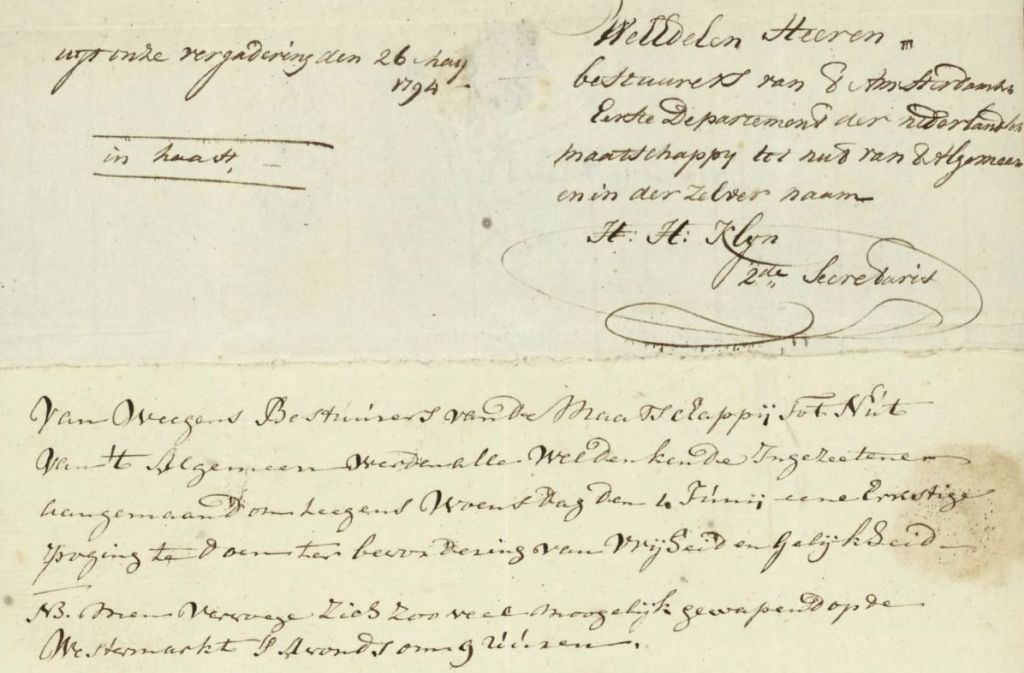 uyt onze vergadering den 26 may
1794
in haast,
WelEdelen Heeren
bestuurers van d' Amsterdamsche
Eerste Departement der nederlandsche
maatschappy tot nut van d' Algemeen
en in der zelver naam
H: H: Klyn
2de Secretaris
Van Weegens Bestuurers van de Maatschappij Tot Nut
van 't Algemeen werden alle Weldenkende Ingezeetenen
aangemaand om teegens Woensdag den 4 Junij eene Ernstige
poging te doen ter bevordering van Vrijheid en Gelijkheid
NB. Men Vervoege Zich Zoo veel moogelijk gewapend op de
Westermarkt S Avonds om 9 Uuren.